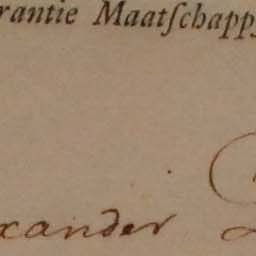 rantie Maatſchappy
xander